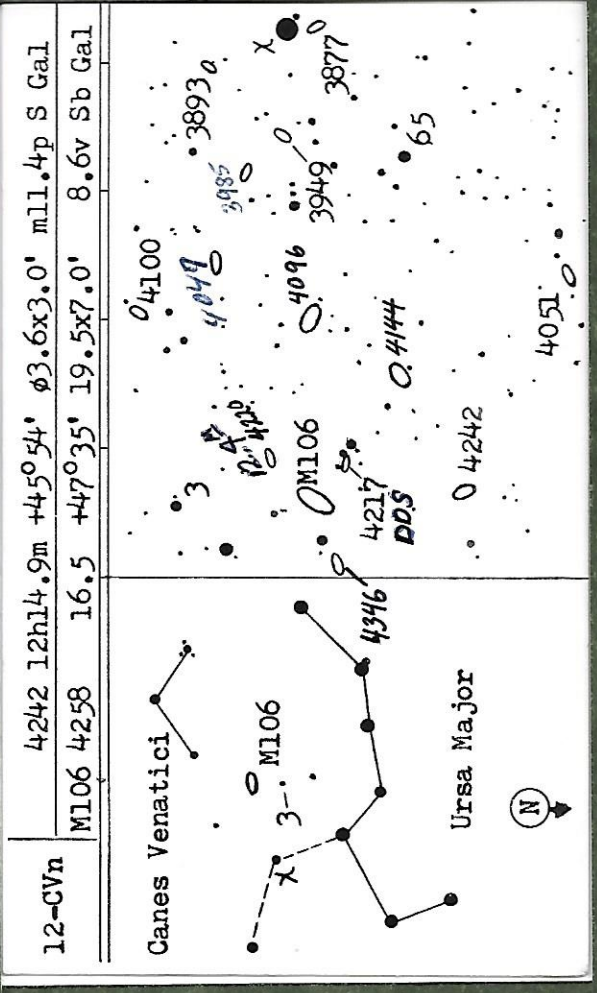 12-CVn
4242 12h14.9m +45°54' ø3.6x3.0' m11.4p S Gal
M106 4258 16.5 +47°35' 19.5x7.0' 8.6v Sb Gal
Canes Venatici
M106
3
χ
Ursa Major
N
3
4220
M106
4217
DDS
4346
4242
4100
4049
4096
4144
4051
3893
3985
3949
65
χ
3877